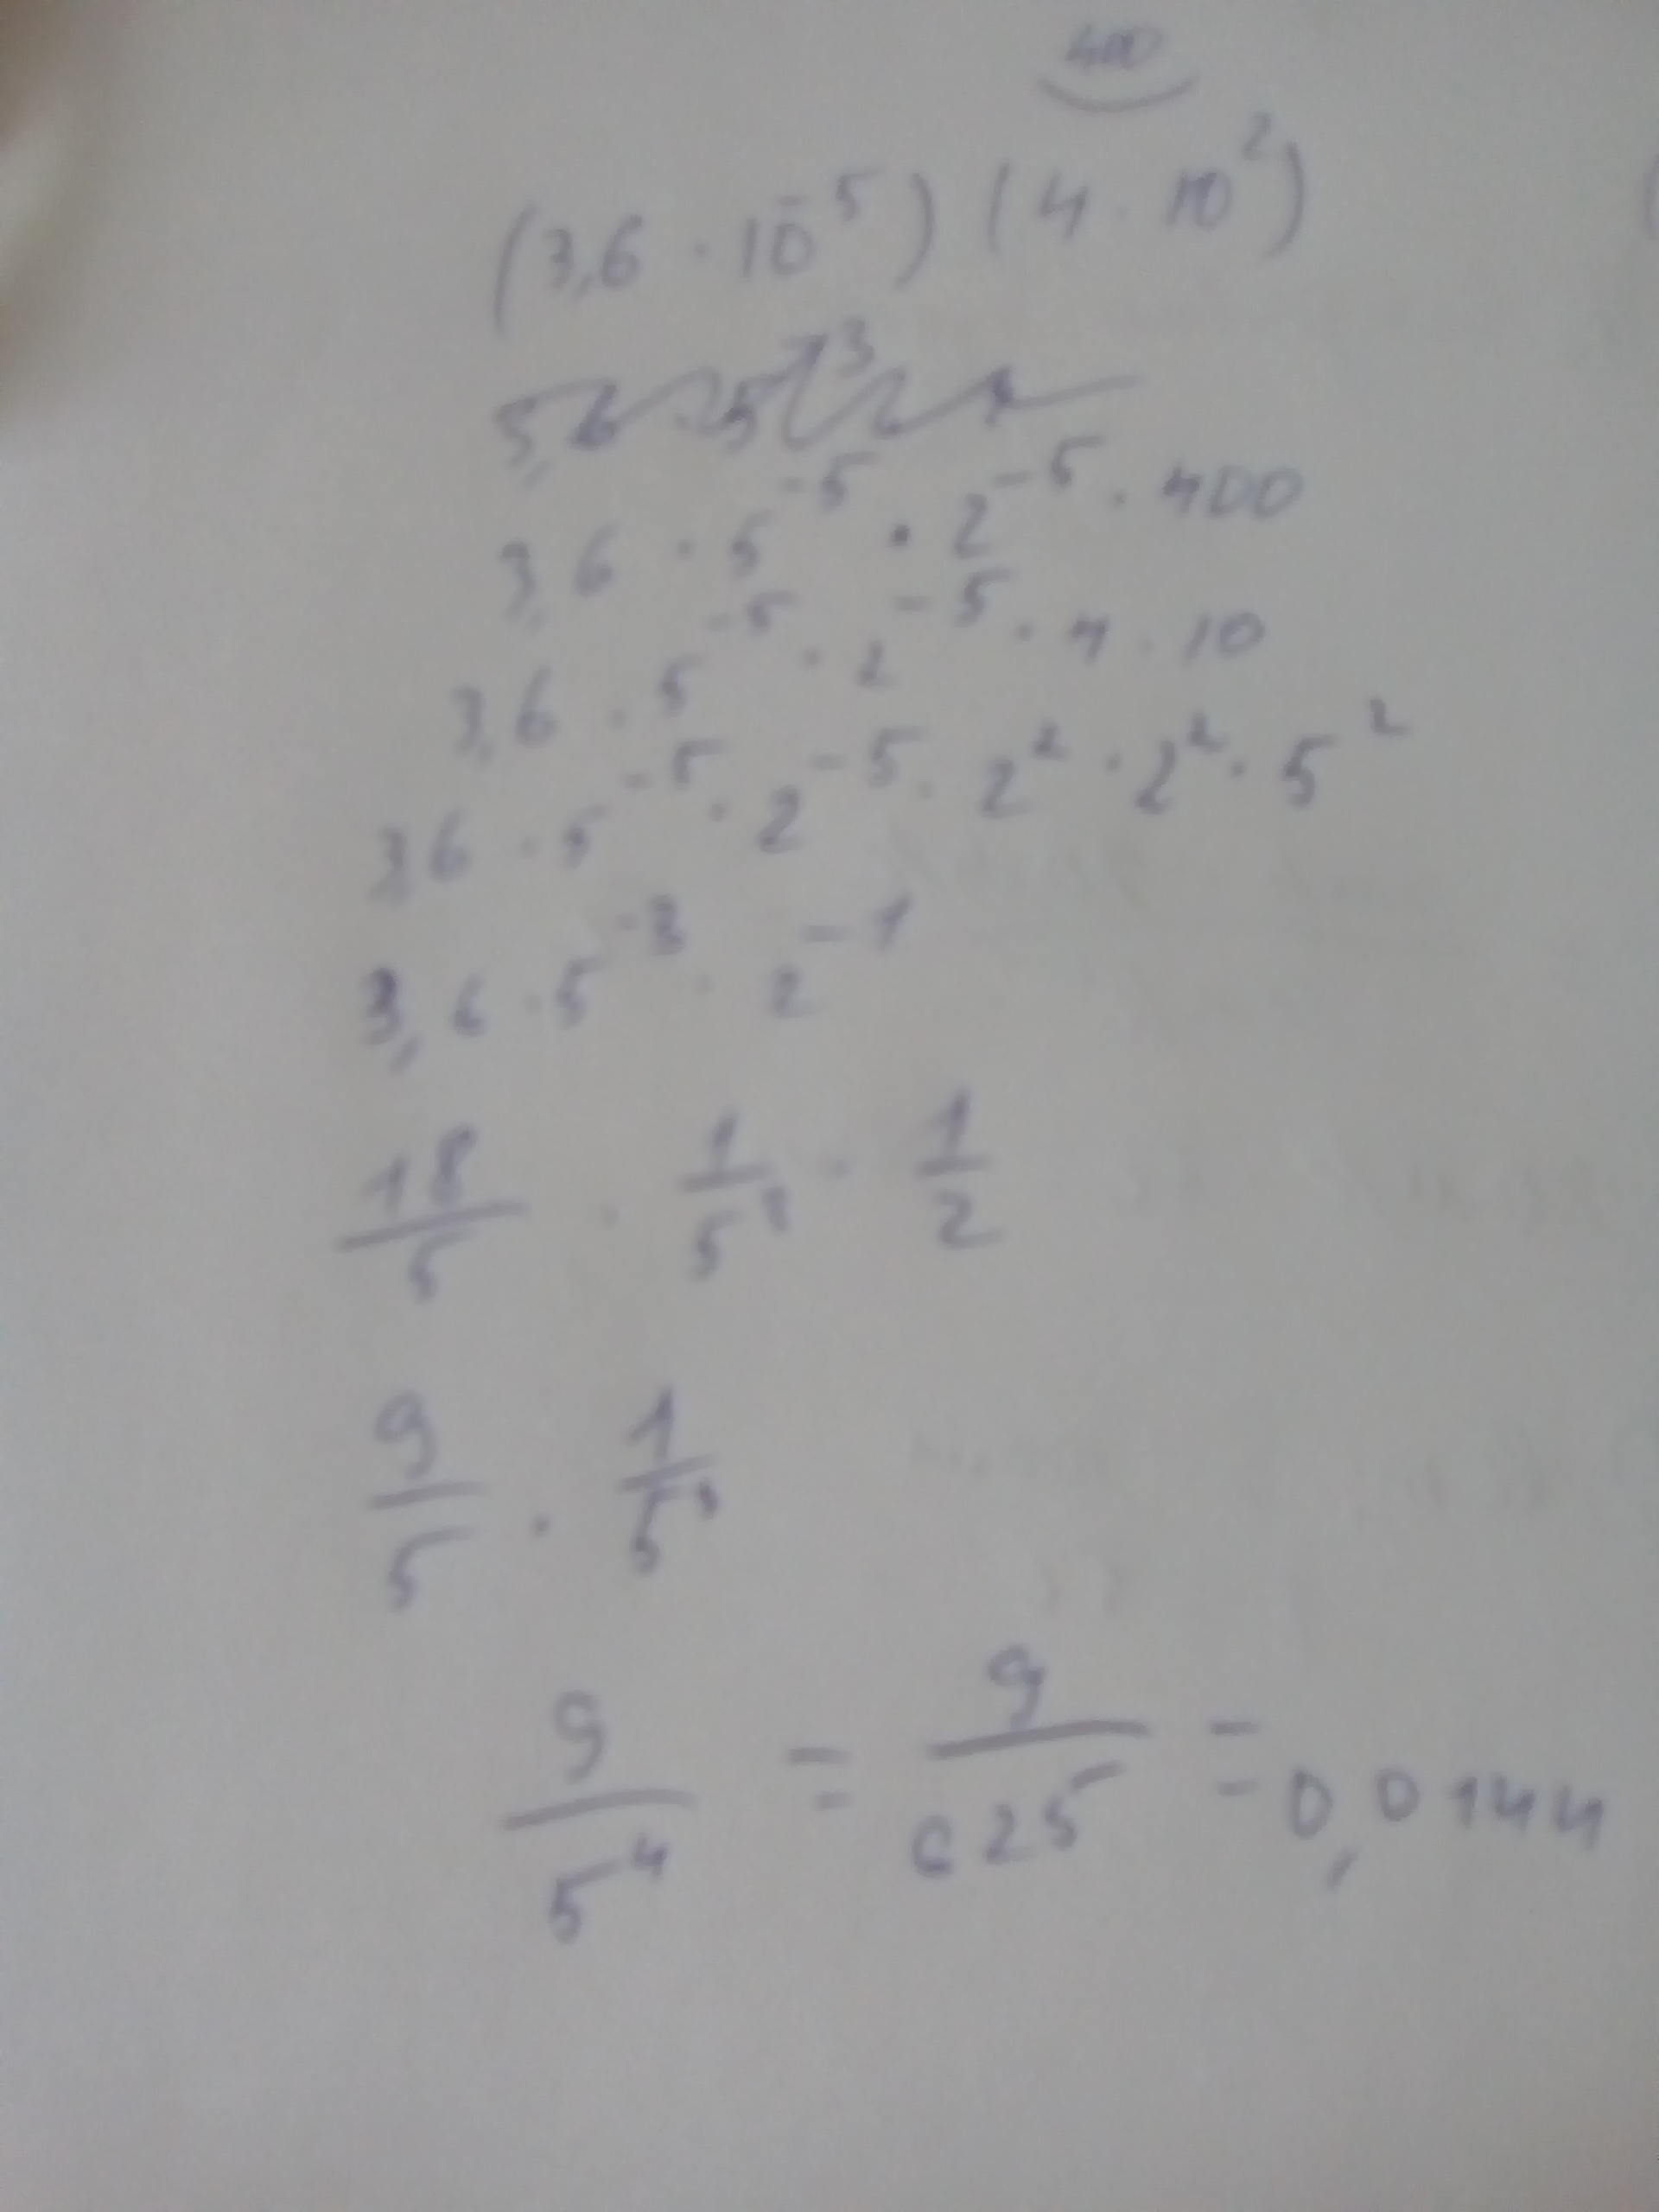 400
(3,6 · 10⁻⁵) (4 · 10²)
3,6 · 5⁻⁵ · 2⁻⁵ · 400
3,6 · 5⁻⁵ · 2⁻⁵ · 4 · 10
3,6 · 5⁻⁵ · 2⁻⁵ · 2² · 2² · 5²
3,6 · 5⁻³ · 2⁻¹
18/5 · 1/5³ · 1/2
9/5 · 1/5³
9/5⁴ = 9/625 = 0,0144